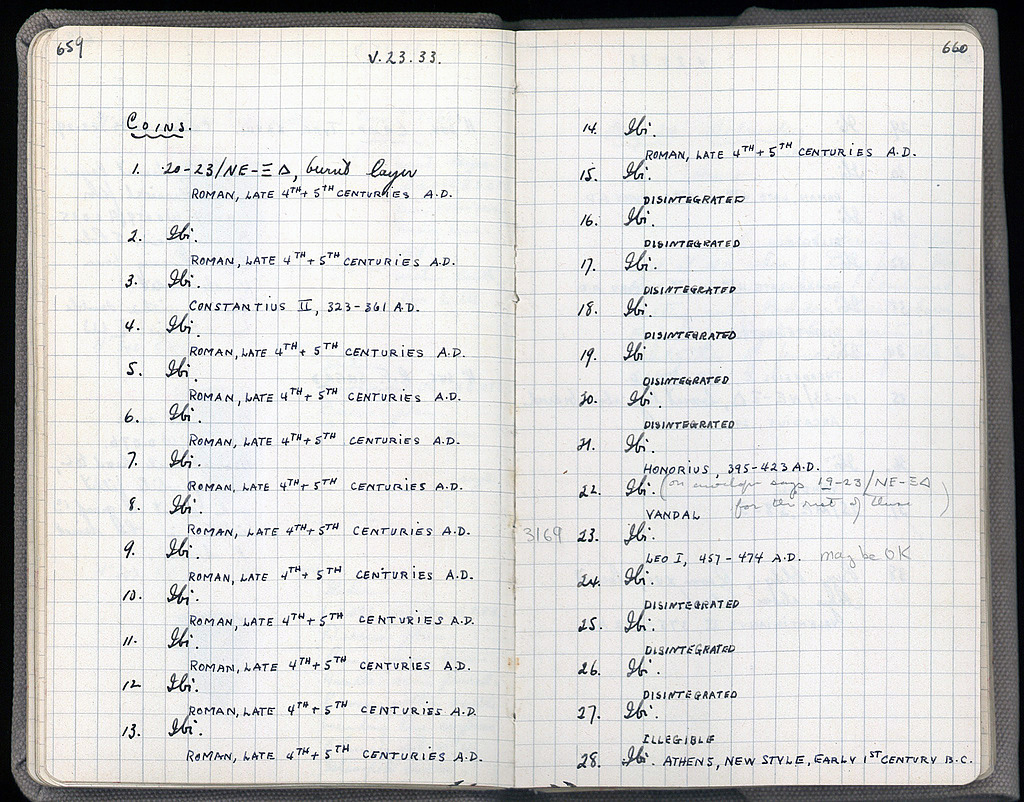 659
V.23.33.
COINS.
1. 20-23/NE-ΞΔ, burnt layer
ROMAN, LATE 4TH + 5TH CENTURIES A.D.
2. Ibi.
ROMAN, LATE 4TH + 5TH CENTURIES A.D.
3. Ibi.
CONSTANTIUS II, 323-361 A.D.
4. Ibi.
ROMAN, LATE 4TH + 5TH CENTURIES A.D.
5. Ibi.
ROMAN, LATE 4TH + 5TH CENTURIES A.D.
6. Ibi.
ROMAN, LATE 4TH + 5TH CENTURIES A.D.
7. Ibi.
ROMAN, LATE 4TH + 5TH CENTURIES A.D.
8. Ibi.
ROMAN, LATE 4TH + 5TH CENTURIES A.D.
9. Ibi.
ROMAN, LATE 4TH + 5TH CENTURIES A.D.
10. Ibi.
ROMAN, LATE 4TH + 5TH CENTURIES A.D.
11. Ibi.
ROMAN, LATE 4TH + 5TH CENTURIES A.D.
12 Ibi.
ROMAN, LATE 4TH + 5TH CENTURIES A.D.
13. Ibi.
ROMAN, LATE 4TH + 5TH CENTURIES A.D.
660
14. Ibi.
ROMAN, LATE 4TH + 5TH CENTURIES A.D.
15. Ibi.
DISINTEGRATED
16. Ibi.
DISINTEGRATED
17. Ibi.
DISINTEGRATED
18. Ibi.
DISINTEGRATED
19. Ibi
DISINTEGRATED
20. Ibi.
DISINTEGRATED
21. Ibi.
HONORIUS, 395-423 A.D.
22. Ibi. (on envelope says 19-23/NE-ΞΔ
for the rest of these)
VANDAL
3169 23. Ibi.
LEO I, 457-474 A.D. may be OK
24. Ibi.
DISINTEGRATED
25. Ibi.
DISINTEGRATED
26. Ibi.
DISINTEGRATED
27. Ibi.
ILLEGIBLE
28. Ibi. ATHENS, NEW STYLE, EARLY 1ST CENTURY B.C.